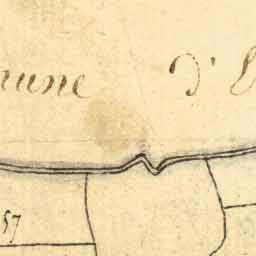 mune d'
57